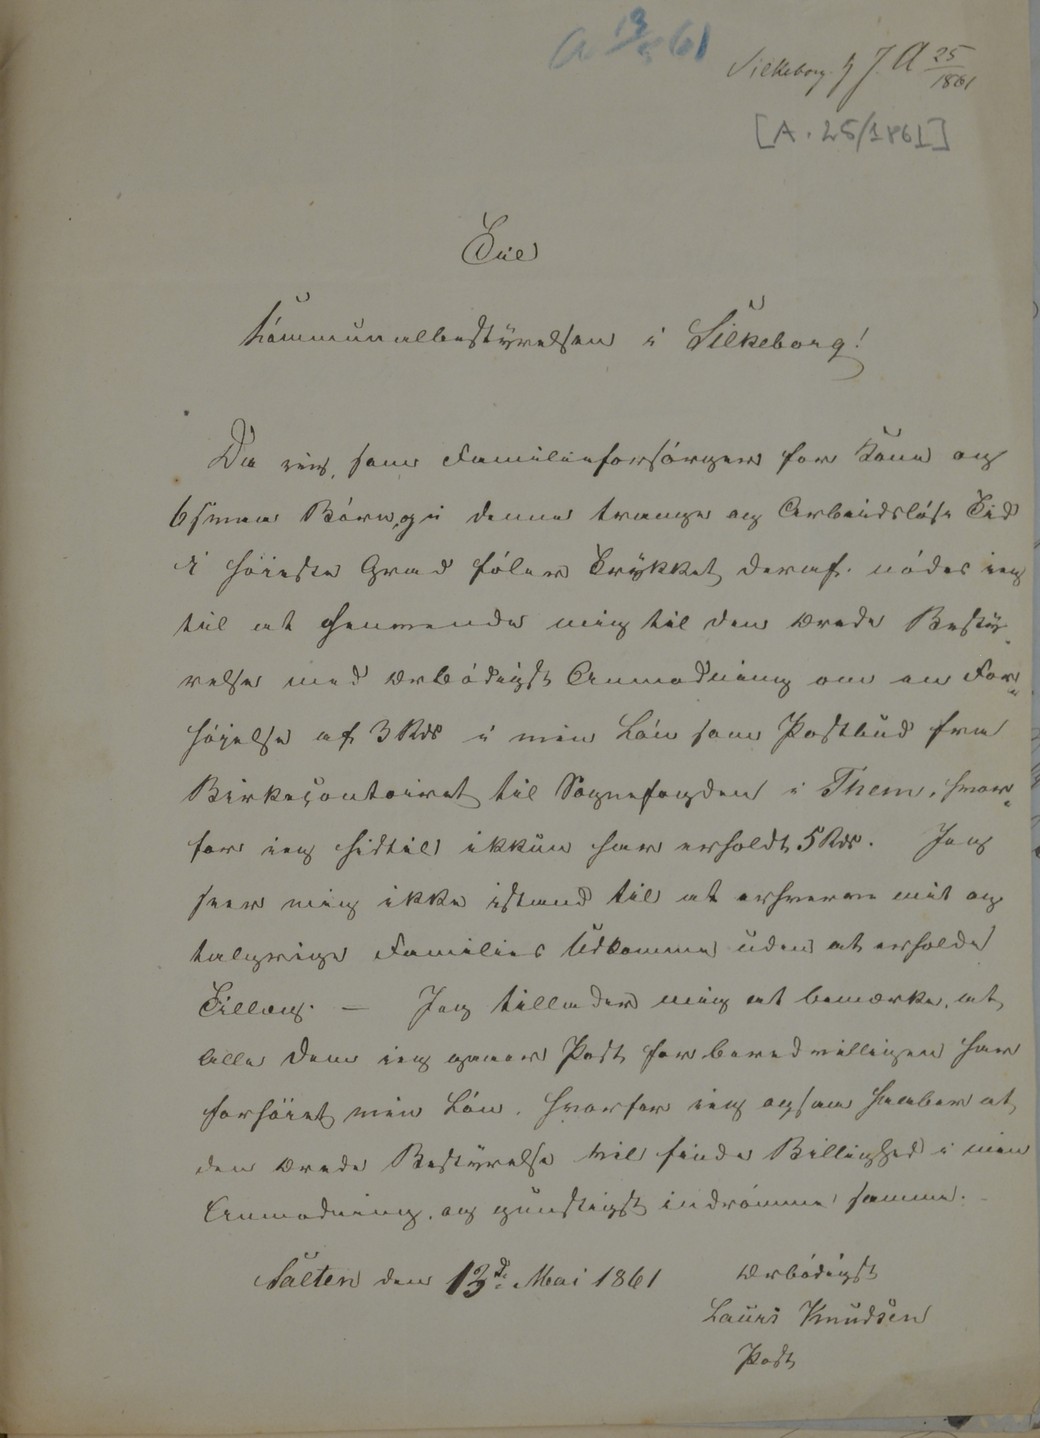 A 13/5 61
Silkeborg J A 25/1861
[A. 25/1861]
Til
Kommunalbestyrelsen i Silkeborg!
Da jeg, som Familieforsörger for Kone og
6 smaa Börn, i denne trange og Arbeidslöse Tid
i höieste Grad föler Trykket deraf, nödes jeg
til at henvende mig til den ærede Besty-
relse med ærbödigst Anmodning om en For-
höjelse af 3 Rdr i min Lön som Postbud fra
Birkecontoiret til Sognefogden i Them, hvor-
for jeg hidtil ikkun har erholdt 5 Rdr. Jeg
seer mig ikke istand til at erhverve mit og
talrige Families Udkomme uden at erholde
Tillæg. — Jeg tillader mig at bemærke, at
alle dem jeg gaaer Post for beredvilligen har
forhöiet min Lön, hvorfor jeg ogsaa haaber at
den ærede Bestyrelse vil finde Billighed i min
Anmodning, og gunstigst indrömme samme.
Salten den 13d. Mai 1861
Ærbödigst
Laurs Knudsen
Post